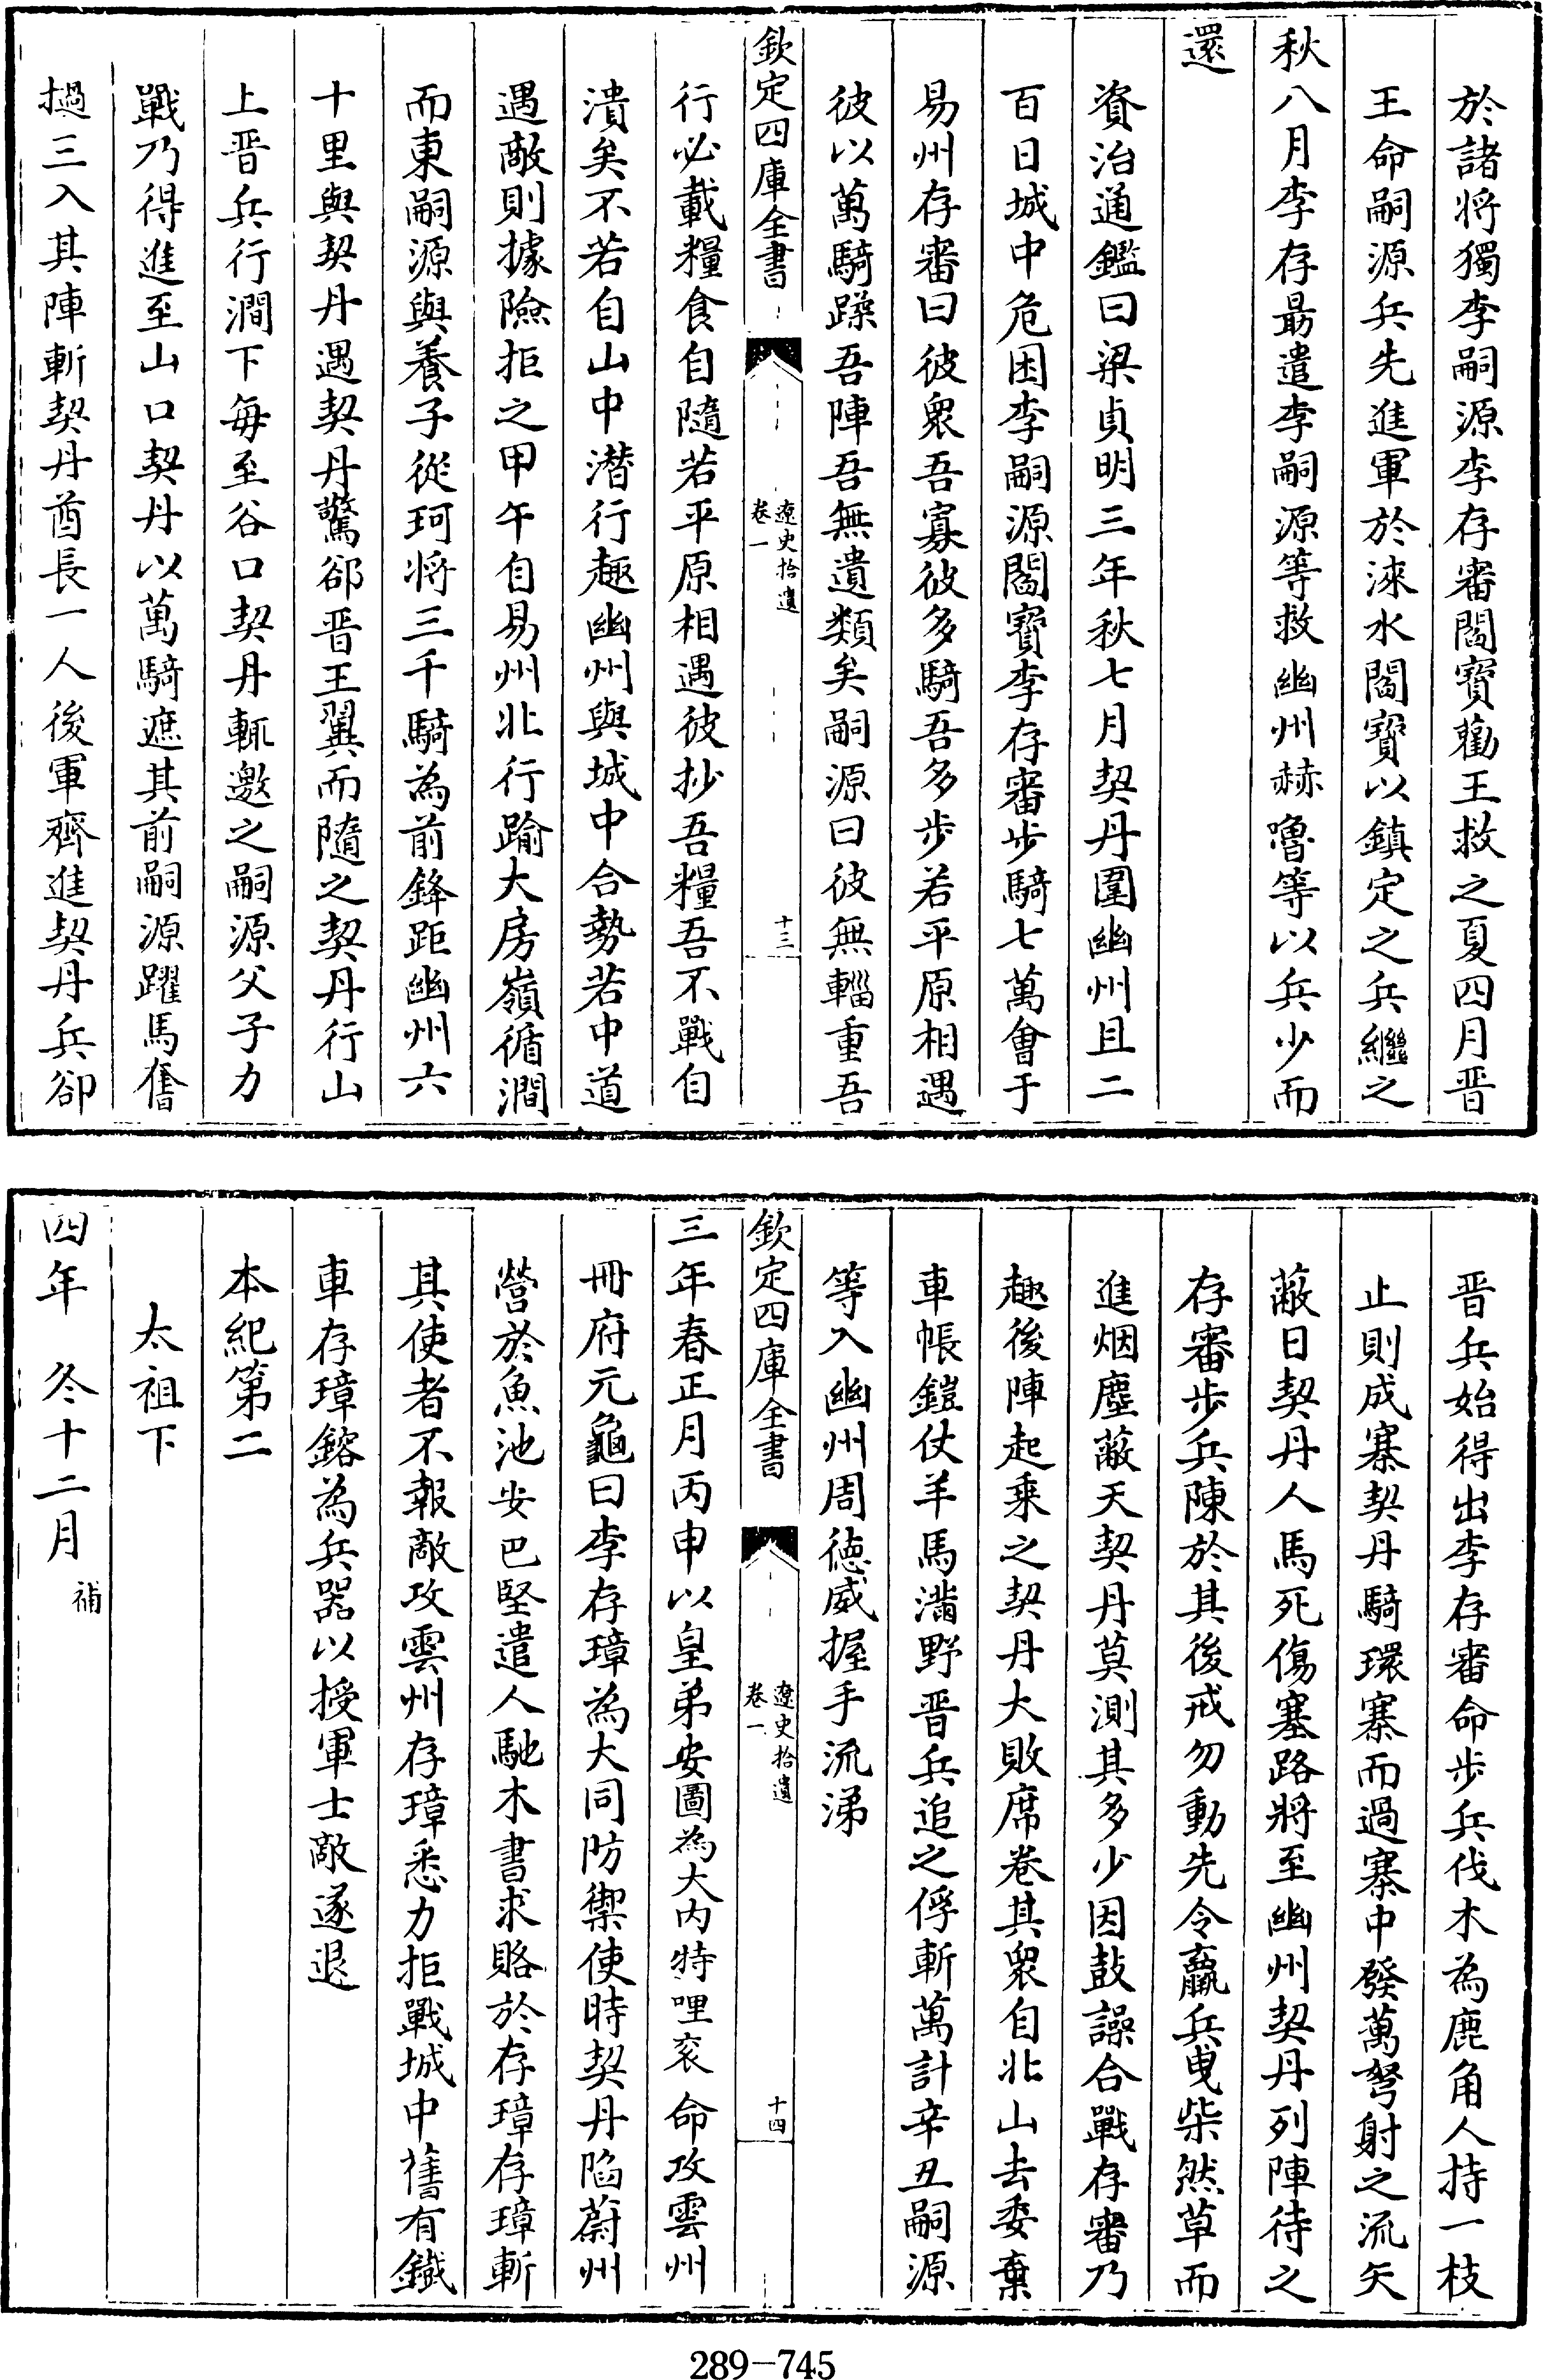 於諸將獨李嗣源李存審閻寳勸王救之夏四月晋
王命嗣源兵先進軍於淶水閻寳以鎮定之兵繼之
秋八月李存朂遣李嗣源等救幽州赫嚕等以兵少而
還
資治通鑑曰梁貞明三年秋七月契丹圍幽州且二
百日城中危困李嗣源閻寳李存審步騎七萬會于
易州存審曰彼衆吾寡彼多騎吾多步若平原相遇
彼以萬騎蹂吾陣吾無遺類矣嗣源曰彼無輜重吾
欽定四庫全書
遼史拾遺
卷一
十三
行必載糧食自隨若平原相遇彼抄吾糧吾不戰自
潰矣不若自山中潜行趣幽州與城中合勢若中道
遇敵則據險拒之甲午自易州北行踰大房嶺循澗
而東嗣源與養子從珂將三千騎為前鋒距幽州六
十里與契丹遇契丹驚郤晋王翼而隨之契丹行山
上晋兵行澗下每至谷口契丹輒邀之嗣源父子力
戰乃得進至山口契丹以萬騎遮其前嗣源躍馬奮
撾三入其陣斬契丹酋長一人後軍齊進契丹兵卻
晋兵始得出李存審命步兵伐木為鹿角人持一枝
止則成寨契丹騎環寨而過寨中發萬弩射之流矢
蔽日契丹人馬死傷塞路將至幽州契丹列陣待之
存審步兵陳於其後戒勿動先令羸兵曳柴然草而
進烟塵蔽天契丹莫測其多少因鼓譟合戰存審乃
趣後陣起乘之契丹大敗席卷其衆自北山去委棄
車帳鎧仗羊馬滿野晋兵追之俘斬萬計辛丑嗣源
等入幽州周德威握手流涕
欽定四庫全書
遼史拾遺
卷一
十四
三年春正月丙申以皇弟安圖為大内特哩衮命攻雲州
冊府元龜曰李存璋為大同防禦使時契丹陷蔚州
營於魚池安巴堅遣人馳木書求賂於存璋存璋斬
其使者不報敵攻雲州存璋悉力拒戰城中舊有鐵
車存璋鎔為兵器以授軍士敵遂退
本紀第二
太祖下
四年 冬十二月補
289-745